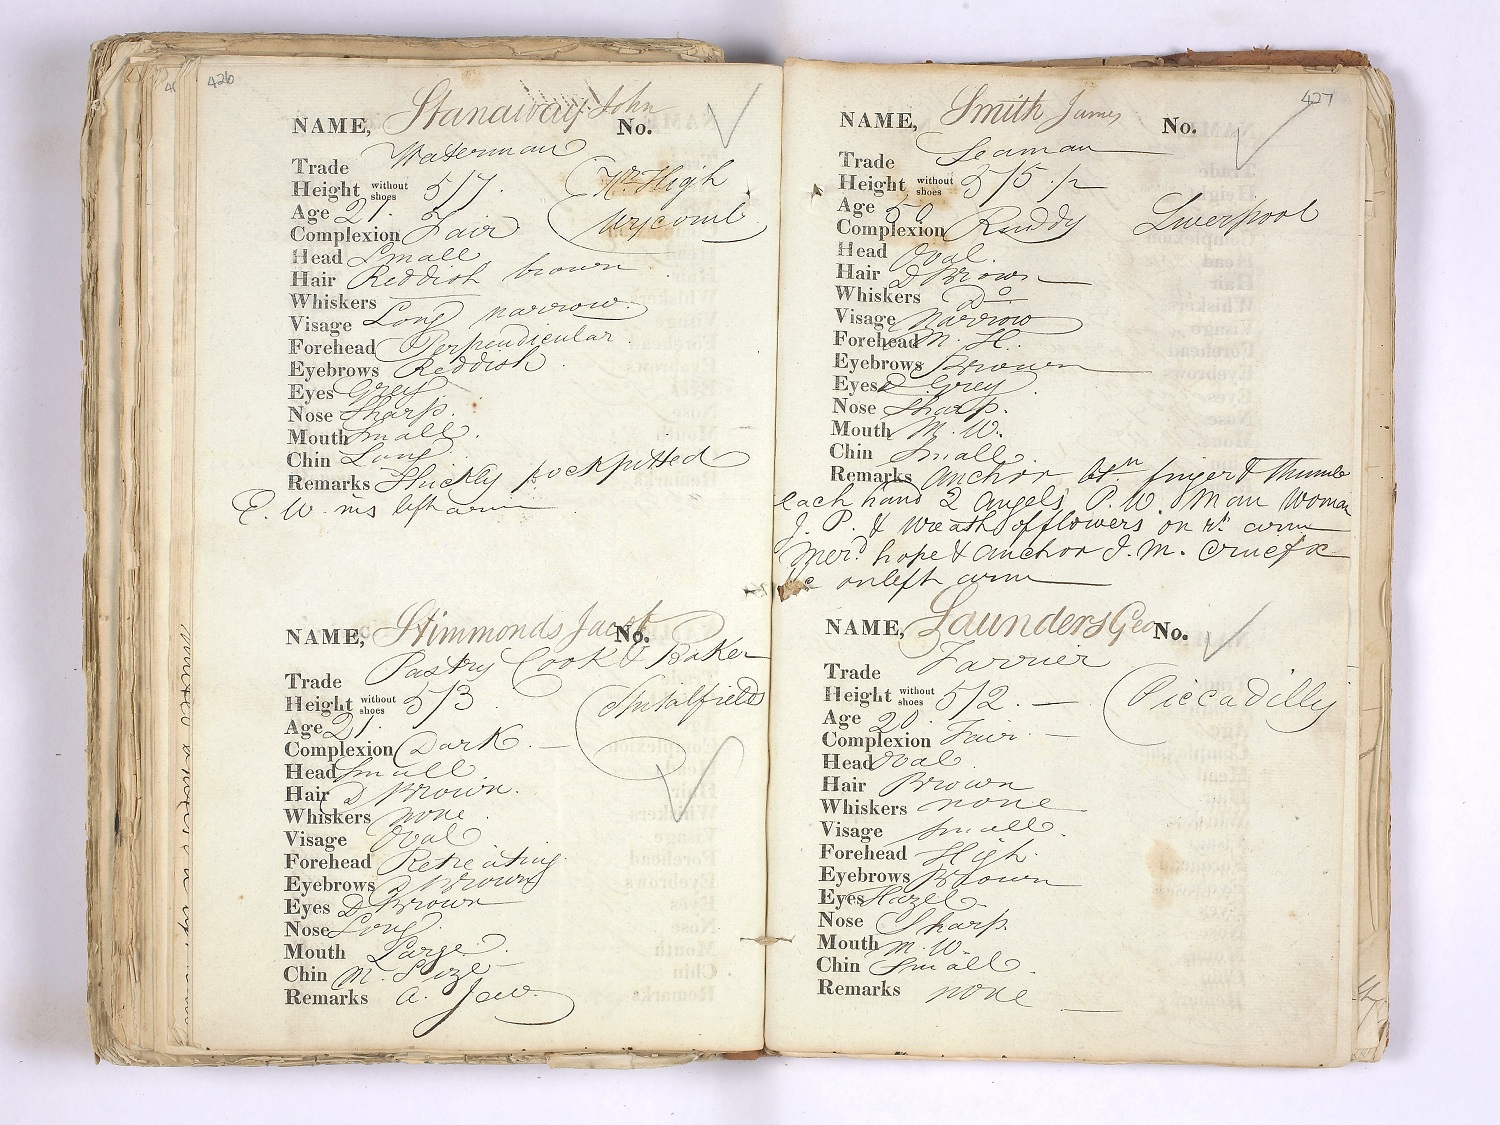 426
NAME, Stanaway John No.
Trade Waterman
Height without shoes 5/7. Nr. High
Age 21. Wycomb
Complexion Fair
Head Small
Hair Reddish brown
Whiskers
Visage Long narrow
Forehead Perpendicular
Eyebrows Reddish
Eyes Grey
Nose Sharp.
Mouth Small.
Chin Long
Remarks Thickly pockpitted
E. W. ins left arm
NAME, Stimmonds Jacob No.
Trade Pastry Cook & Baker
Height without shoes 5/3 Spitalfields
Age 21.
Complexion Dark. —
Head Small
Hair D Brown.
Whiskers none
Visage Oval
Forehead Retreating
Eyebrows D Brown
Eyes D Brown
Nose Long
Mouth Large
Chin M. Size
Remarks a. Jew.
427
NAME, Smith James No.
Trade Seaman
Height without shoes 5/5. 1/2
Age 50 Liverpool
Complexion Ruddy
Head Oval.
Hair D Brown
Whiskers Do
Visage Narrow
Forehead M. H.
Eyebrows Brown
Eyes D Grey
Nose Sharp.
Mouth M. W.
Chin Small
Remarks anchor btn finger & Thumb
each hand 2 angels, P. W. Man Woman
J. P. & Wreath of flowers on rt. arm
Merd hope & anchor J. M. Crucifix
&c on left arm
NAME, Saunders Geo No.
Trade Farrier
Height without shoes 5/2. — Piccadilly
Age 20.
Complexion Fair. —
Head Oval
Hair Brown
Whiskers none
Visage Small.
Forehead High.
Eyebrows Brown
Eyes Hazel
Nose Sharp
Mouth M. W.
Chin Small.
Remarks none